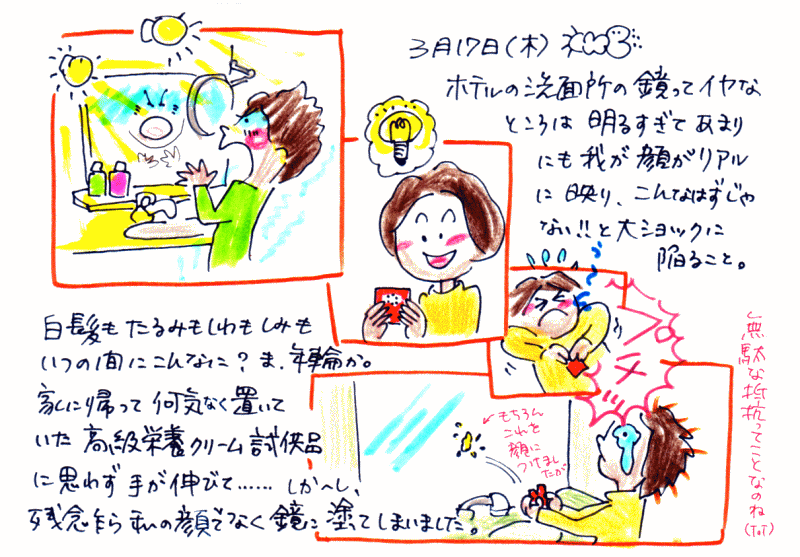 3月17日(木)
ホテルの洗面所の鏡ってイヤな
ところは明るすぎてあまり
にも我が顔がリアル
に映り、こんなはずじゃ
ない!!と大ショックに
陥ること。
白髪もたるみもしわもしみも
いつの間にこんなに?ま、年輪か。
家に帰って何気なく置いて
いた高級栄養クリーム試供品
に思わず手が伸びて……しか〜し、
残念乍ら私の顔でなく鏡に塗ってしまいました。
う〜っ
もちろん
これを
顔に
つけまし
たが
無駄な抵抗ってことなのね
(ToT)